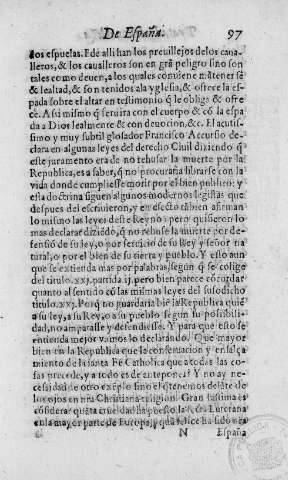 De España. 97
los espuelas. E de alli han los previllejos delos cava-
lleros, & los cavalleros son en grã peligro sino son
tales como deven, a los quales conviene mãtener fe
& lealtad, & son tenidos ala yglesia, & ofrece la es-
pada sobre el altar en testimonio q̃ le obliga & ofre-
ce. Asi mismo q̃ servira con el cuerpo & cõ la espa
da a Dios lealmente & con devocion, &c. El acutiss-
simo y muy subtil glosador Francisco Accursio de-
clara en algunas leyes del derecho Civil diziendo q̃
este juramento era de no rehusar la muerte por la
Republica, es a saber, q̃ no procuraria librarse con la
vida donde cumpliesse morir por el bien publico: y
esta doctrina siguen algunos modernos legistas que
despues del escrivieron, y en efecto tãbien afirman
lo mismo las leyes deste Reyno: pero quisieron lo
mas declarar diziẽdo, q̃ no rehuse la muerte por de-
fensiõ de su ley, o por servicio de su Rey y señor na
tural, o por el bien de su tierra y pueblo. Y esto aun
que se extienda mas por palabras, segun q̃ se colige
del titulo .xxj. partida .ij. pero bien parece cõcluyr
quanto al sentido cõ las mismas leyes del susodicho
titulo .xxj. Porq̃ no guardaria biẽ la Republica quiẽ
a su ley, a su Rey, o a su pueblo segun su possibili-
dad, no amparasse y defendiesse. Y para que esto se
entienda mejor vamos lo declarãdo. Que mayor
bien en la Republica que la conservacion y ensalça
miento de la santa Fe Catholica que a todas las co-
sas precede, y a todo es de anteponer? Y no ay ne-
cessidad de otro exẽplo sino el q̃ tenemos delãte de
los ojos en nr̃a Christiana religion. Gran lastima es
cõsiderar quãta crueldad ha puesto la Luterana
en la mayor parte de Europa, y quã felice ha sido nr̃a
N España